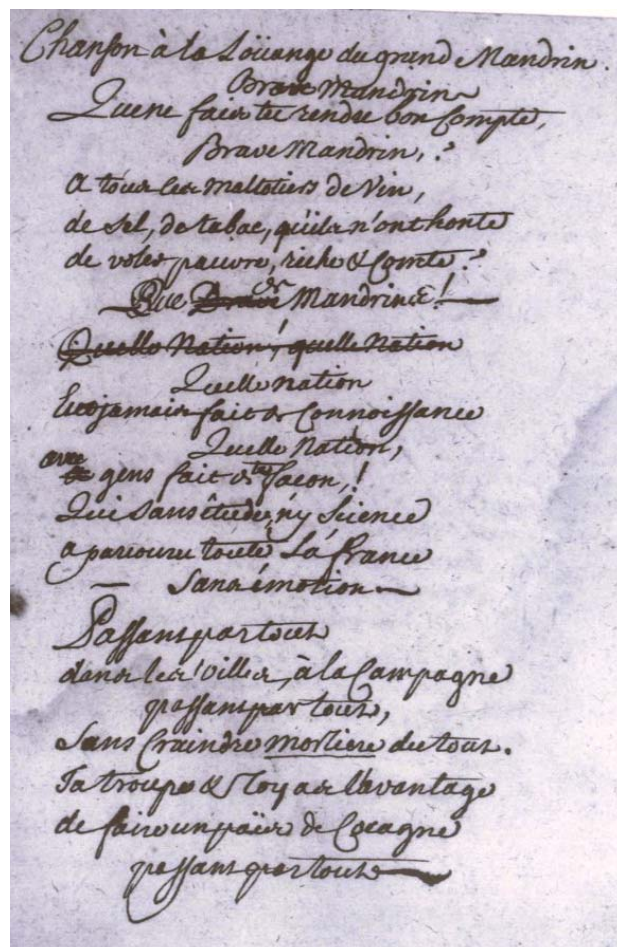 Chanson à la Loüange du grand Mandrin.
Brave Mandrin
Que ne fais tu rendre bon Compte,
Brave Mandrin,?
A tous les maltotiers de Vin,
de Sel, de tabac, qu'ils n'ont honte
de voler pauvre, riche & Comte?
Que Mandrin!
Quelle Nation! quelle Nation
Quelle nation
jamais fait de Connoissance
Quelle Nation,
avec gens fait de ta facon,!
Qui Sans étude, n'y Science
a parcouru toute La france
Sans émotion
Passant par tout
dans les villes, à la Campagne
passant par tout,
Sans Craindre morliere du tout.
Ta troupe & Toy as l'avantage
de faire un païs de Cocagne
passant par tout